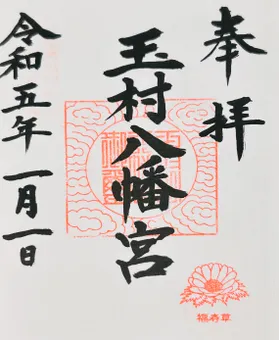 奉拝
玉村八幡宮
令和五年一月一日
福寿草